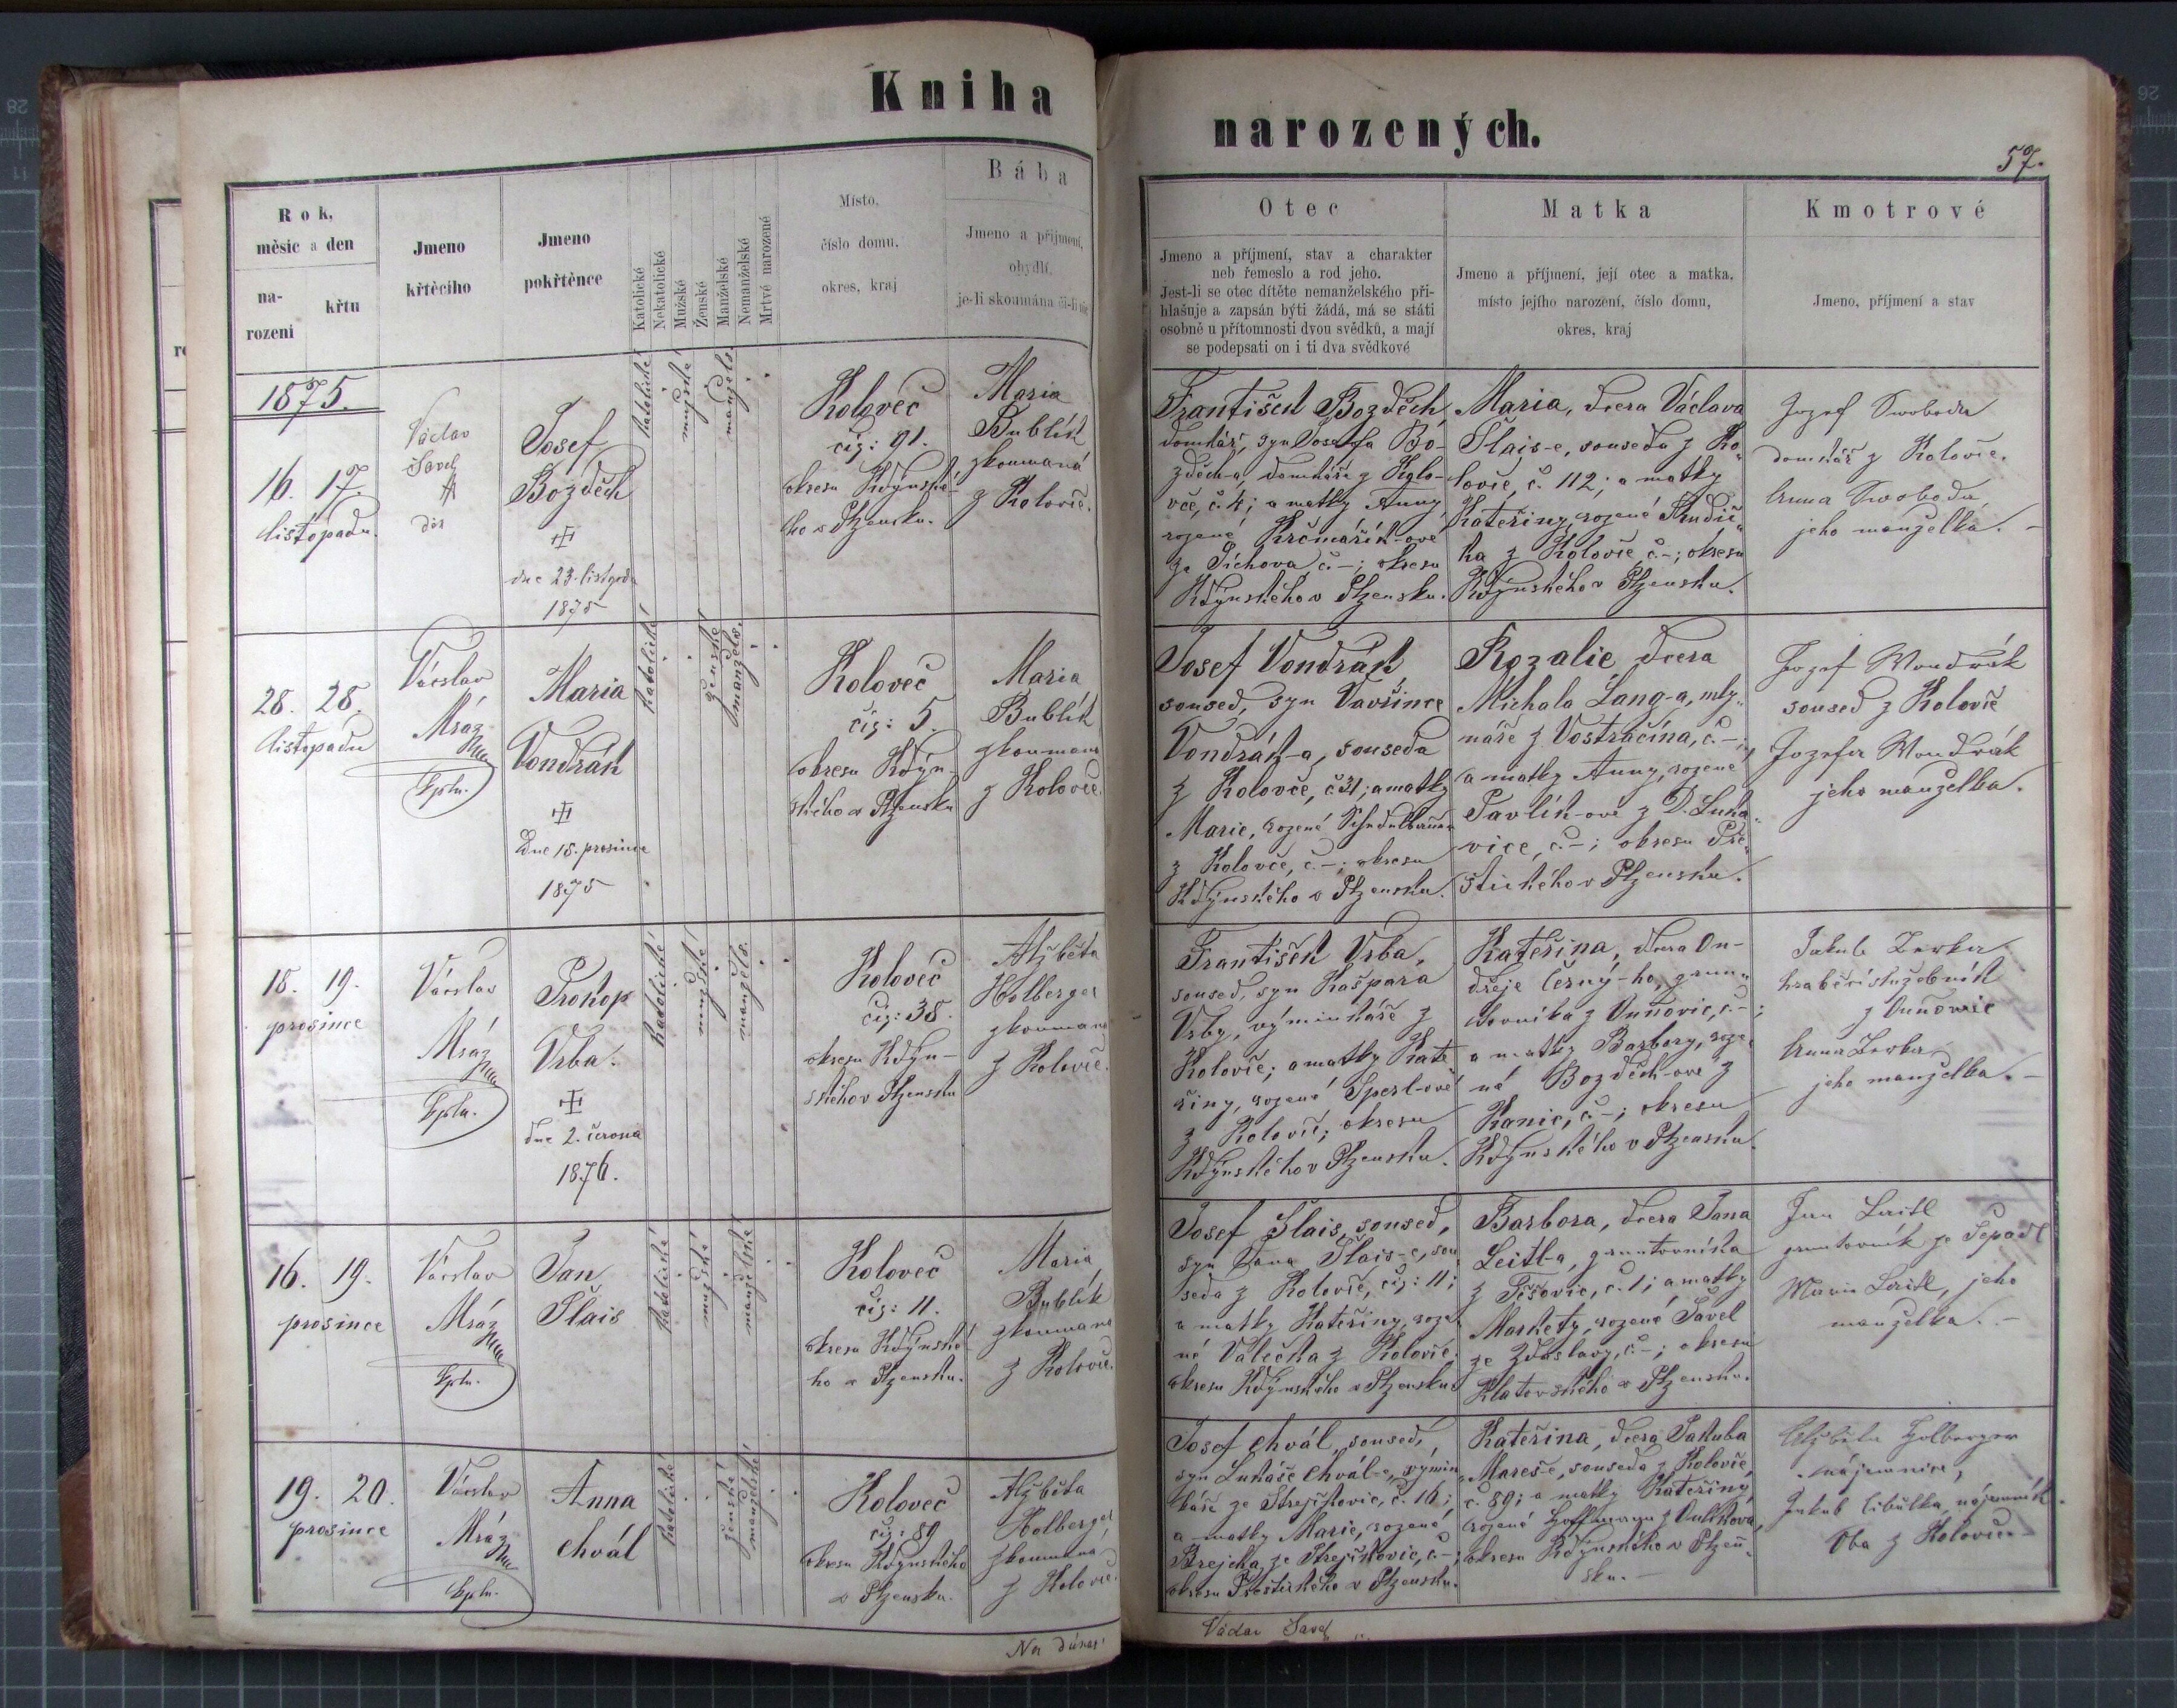 Kniha
narozených.
57.
Rok,
měsíc a den
na-
rození
křtu
Jmeno
křtěcího
Jmeno
pokřtěnce
Katolické
Nekatolické
Mužské
Ženské
Manželské
Nemanželské
Mrtvé narozené
Místo,
číslo domu,
okres, kraj
Bába
Jmeno a příjmení,
obydlí,
je-li skoumána či-li
Otec
Jmeno a příjmení, stav a charakter
neb řemeslo a rod jeho.
Jest-li se otec dítěte nemanželského při-
hlašuje a zapsán býti žádá, má se státi
osobně u přítomnosti dvou svědků, a mají
se podepsati on i ti dva svědkové
Matka
Jmeno a příjmení, její otec a matka,
místo jejího narození, číslo domu,
okres, kraj
Kmotrové
Jmeno, příjmení a stav
1875.
16. 17.
listopadu.
Václav
Šavel
Josef
Bozděch
dne 23. listopadu
1875
katolické
mužské
manžels.
Koloveč
čís: 91.
okresu Kdýnské-
ho v Plzensku.
Maria
Bublík
zkoumaná
z Kolovče.
František Bozděch,
domkář, syn Josefa Bo-
zděch-a, domkáře z Kolo-
vče, č. 4; a matky Anny
rozené Krčmářík-ové
ze Síchova č –; okresu
Kdýnského v Plzensku.
Maria, dcera Václava
Šlais-e, souseda z Ko-
lovče, č. 112; a matky
Kateřiny, rozené
ka z Kolovče, č. –; okresu
Kdýnského v Plzensku.
Jozef Swoboda
domkář z Kolovče.
Anna Swoboda
jeho manželka. –
28. 28.
listopadu
Václav
Mráz
kpln.
Maria
Vondrák
Dne 15. prosince
1875
katolické
ženské
manžels.
Koloveč
čís: 5.
okresu Kdýn-
ského v Plzensku
Maria
Bublík
zkoumana
z Kolovče.
Josef Vondrák,
soused, syn Vavřince
Vondrák-a, souseda
z Kolovče, č 31; a matky
Marie, rozené
z Kolovče, č. –; okresu
Kdýnského v Plzensku.
Rozalie, dcera
Michala Lang-a, mly-
náře z Vostračína, č. –;
a matky Anny, rozené
Pavlík-ové z D. Luka-
vice, č. –; okresu Pře-
štického v Plzensku.
Jozef Wondrák
soused z Kolovče
Jozefa Wondrák
jeho manželka.
18. 19.
prosince
Václav
Mráz
kpln.
Prokop
Vrba.
dne 2. června
1876.
katolické
mužské
manžels.
Koloveč
čís: 38.
okresu Kdýn-
ského v Plzensku
Alžběta
Holberger
zkoumana
z Kolovče.
František Vrba,
soused, syn Kašpara
Vrby, výminkáře z
Kolovče; a matky Kate-
řiny, rozené Sperl-ové
z Kolovče; okresu
Kdýnského v Plzensku.
Kateřina, dcera On-
dřeje Černý-ho, grun-
tovníka z Úňovic, č. –;
a matky Barbory, roze-
né Bozděch-ové z
Kanic, č. –; okresu
Kdýnského v Plzensku.
Jakub Zerka
hraběcí služebník
z Úňowic
Anna Zerka
jeho manželka. –
16. 19.
prosince
Václav
Mráz
kpln.
Jan
Šlais
katolické
mužské
manželské
Koloveč
čís: 11.
okresu Kdýnské-
ho v Plzensku.
Maria
Bublík
zkoumana
z Kolovče.
Josef Šlais, soused,
syn Jana Šlais-e, sou-
seda z Kolovče, čís: 11;
a matky Kateřiny, roze-
né Valečka z Kolovče,
okresu Kdýnského v Plzensku.
Barbora, dcera Jana
Leitl-a, gruntovníka
z Těšovic, č. 1; a matky
Markety, rozené Šavel
ze Zdoslavy, č. –; okresu
Klatovského v Plzensku.
Jan Leitl
gruntovník ze Sepadl
Maria Leitl, jeho
manželka. –
19. 20.
prosince
Václav
Mráz
kpln.
Anna
Chvál
katolické
ženské
manželské
Koloveč
čís: 89
okresu Kdýnského
v Plzensku.
Alžběta
Holberger
zkoumaná
z Kolovče.
Josef Chvál, soused,
syn Lukáše Chvál-e, výmin-
káře ze Strejčkovic, č. 16;
a matky Marie, rozené
Strejčka ze Strejčkovic, č. –;
okresu Přeštického v Plzensku.
Kateřina, dcera Jakuba
Mareš-e, souseda z Kolovče,
č. 89; a matky Kateřiny,
rozené Hoffmann z
okresu Kdýnského v Plzeň-
sku. –
Alžběta Holberger
nájemnice,
Jakub Cibulka, nájemník.
Oba z Kolovče. –
Václav Šavel